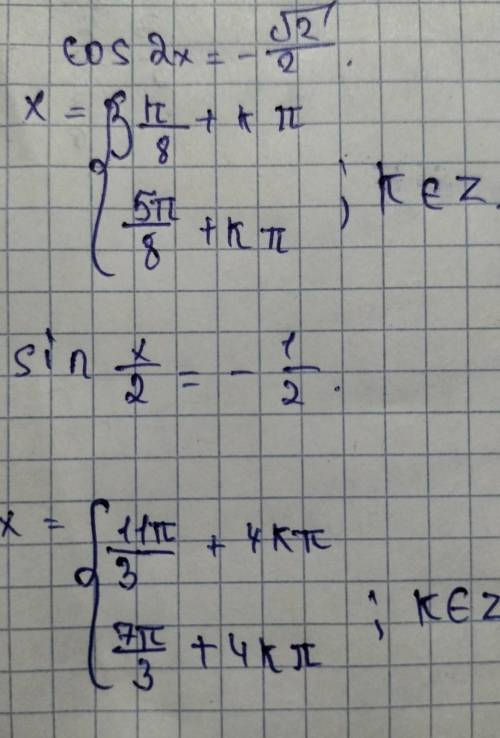 cos 2x = - √2/2.
x = { 3π/8 + kπ
5π/8 + kπ ; k ∈ Z.
sin x/2 = - 1/2.
x = { 11π/3 + 4kπ
7π/3 + 4kπ ; k ∈ Z